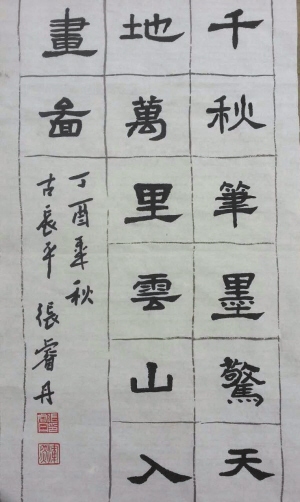 千秋筆墨驚天
地萬里雲山入
畫啚
丁酉年秋
古長平張睿丹